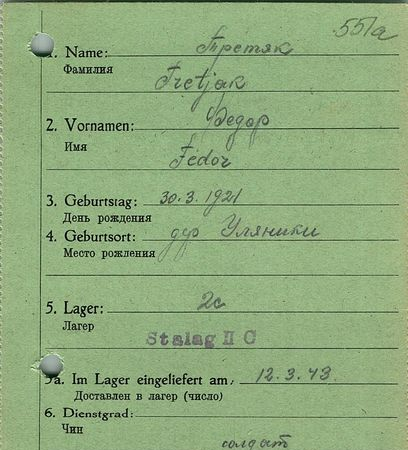 551a
1. Name: Третяк
Фамилия
Tretjak
2. Vornamen: Федор
Имя
Fedor
3. Geburtstag: 30.3.1921
День рождения
4. Geburtsort: дер Уляники
Место рождения
5. Lager: 2c
Лагер
Stalag II C
5a. Im Lager eingeliefert am: 12.3.43.
Доставлен в лагер (число)
6. Dienstgrad:
Чин
солдат